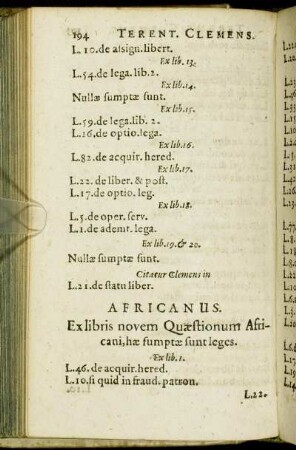 194 TERENT. CLEMENS.
L. 10. de assign. libert.
Ex lib. 13.
L. 54. de lega. lib. 2.
Ex lib. 14.
Nullæ sumptæ sunt.
Ex lib. 15.
L. 59. de lega. lib. 2.
L. 16. de optio. lega.
Ex lib. 16.
L. 82. de acquir. hered.
Ex lib. 17.
L. 22. de liber. & post.
L. 17. de optio. leg.
Ex lib. 18.
L. 5. de oper. serv.
L. 1. de ademt. lega.
Ex lib. 19. & 20.
Nullæ sumptæ sunt.
Citatur Clemens in
L. 21. de statu liber.
AFRICANUS.
Ex libris novem Quæstionum Afri-
cani, hæ sumptæ sunt leges.
Ex lib. 1.
L. 46. de acquir. hered.
L. 10. si quid in fraud. patron.
L. 22.